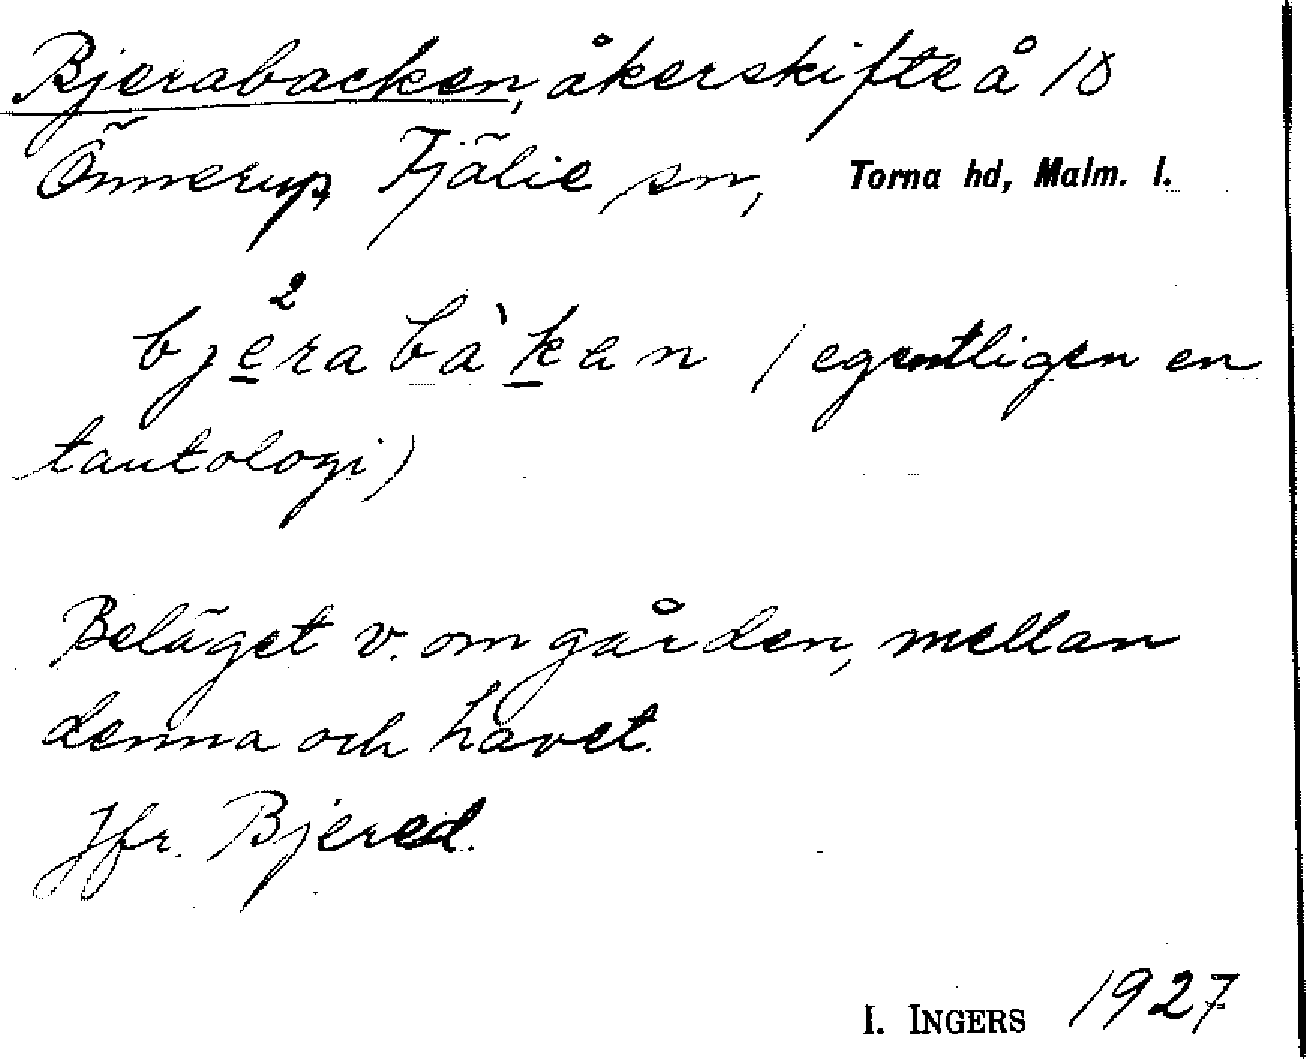 Bjerabacken, åkerskifte å 10
Önnerup, Fjälie sn, Torna hd, Malm. l.
2
bjerabà'kan (egentligen en
tautologi)
Beläget v. om gården, mellan
denna och havet.
Jfr. Bjered.
I. INGERS 1927